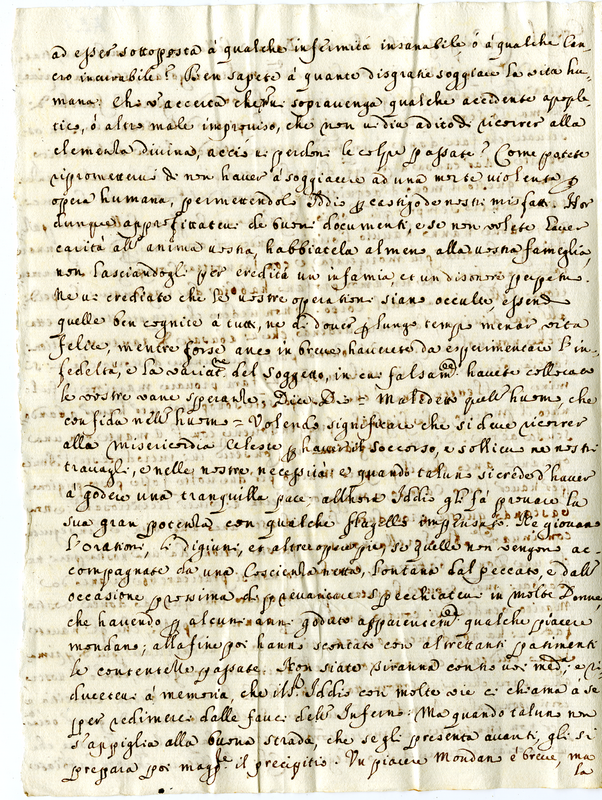 ad esser sottoposta à qualche infirmità insanabile, ò à qualche Can-
cro incurabile? Ben sapete à quante disgratie soggiace la vita hu-
mana. Chi v'accerta che non vi sopravenga qualche accidente apople-
tico, ò altro male improviso, che non vi dia adito di ricorrer alla
clemenza divina, acciò vi perdoni le colpe passate? Come potete
ripromettervi di non haver à soggiacere ad una morte violenta p
opera humana, permettendolo Iddio p castigo de nostri misfatti. Hor
dunque approfittatevi de buoni documenti, e se non volete haver
carità all'anima vostra, habbiatela almeno alla vostra famiglia,
non lasciandogli per eredità un infamia et un disonore perpetuo.
Ne vi crediate che le vostre operationi siano occulte, essendo
quelle ben cognite à tutti, ne di dover p lungo tempo menar vita
felice, mentre forse anco in breve haverete da esperimentare l'in-
fedeltà, e la del Soggetto, in cui falsamte havete collocate
le vostre vane speranze. Dice Dio = Maledetto quell'huomo, che
confida nell'huomo = Volendo significare che si deve ricorrer
alla Misericordia Celeste p soccorso, e sollievo ne nostri
travagli, e nelle nostre necessità: e quando taluno si crede d'haver
à godere una tranquilla pace, allhora Iddio gli fà provare la
sua gran potenza con qualche flagello improviso. Ne giovano
l'orationi, li digiuni, et altre opere pie, se quelle non vengono ac-
compagnate da una Coscienza netta, lontana dal peccato, e dall'
occasione prossima di prevaricare. Specchiatevi in molte Donne,
che havendo p alcuni anni godato apparentemte qualche piacere
mondano; alla fine poi hanno scontato con altrettanti patimenti
le contentezze passate. Non siate tiranna contro voi medma; e ri-
ducetevi à memoria, che il Sr Iddio con molte vie ci chiama a se
per redimerci dalle fauci dell'Inferno: Ma quando taluno non
s'appiglia alla buona strada, che se gli presenta avanti, gli si
prepara poi maggre il precipitio. Un piacere Mondano è breve, ma
la